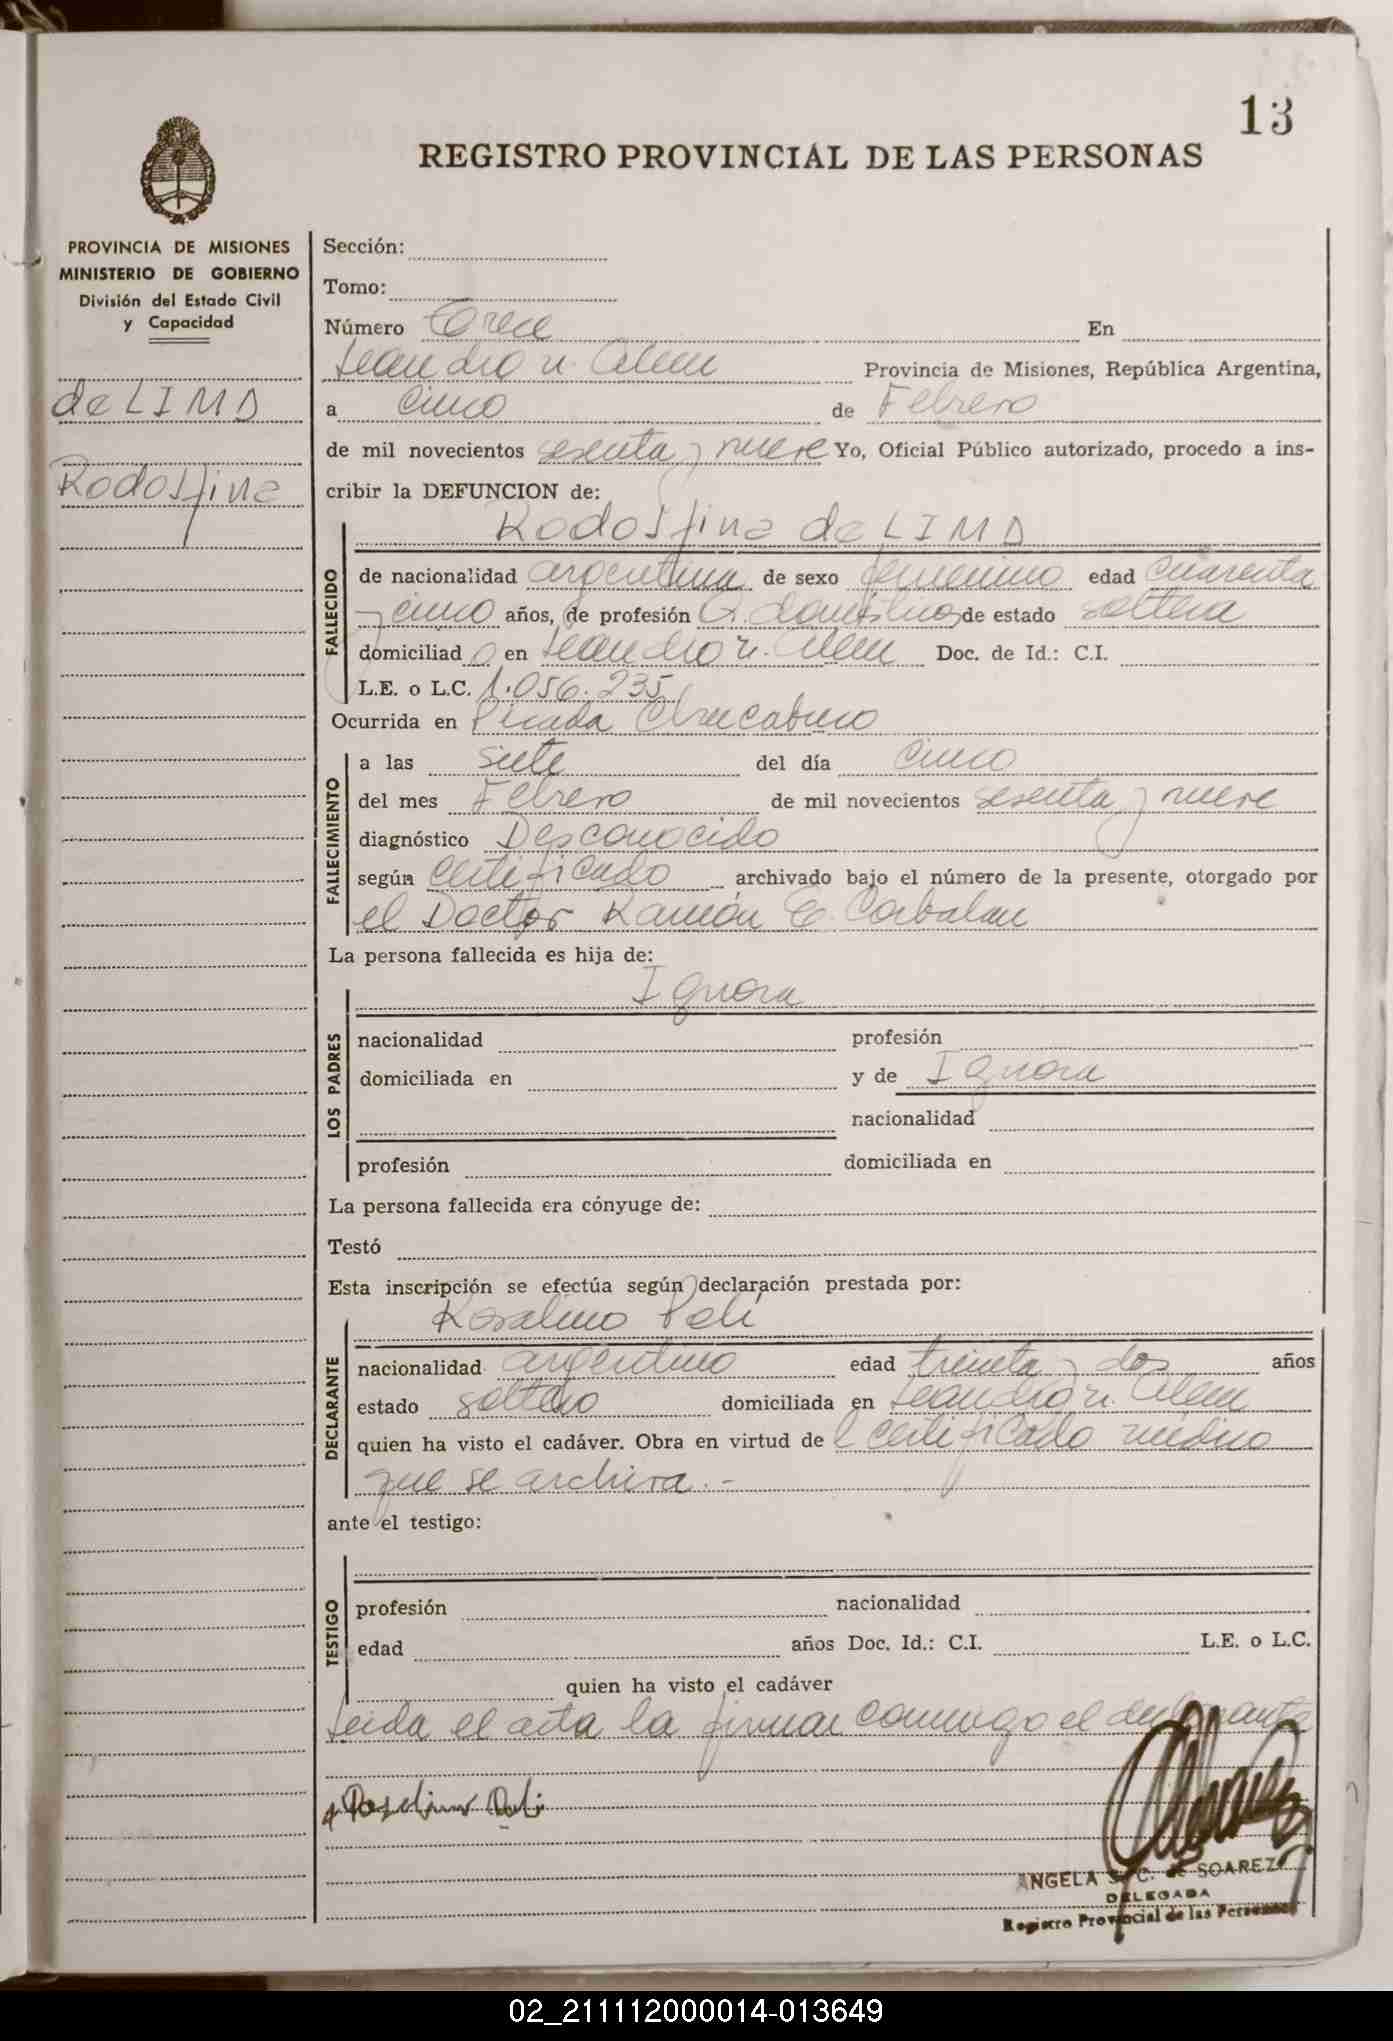 13
REGISTRO PROVINCIAL DE LAS PERSONAS
PROVINCIA DE MISIONES
MINISTERIO DE GOBIERNO
División del Estado Civil
y Capacidad
de LIMA
Rodolfina
Sección:
Tomo:
Número Trece En
Leandro N. Alem Provincia de Misiones, República Argentina,
a cinco de Febrero
de mil novecientos sesenta y nueve Yo, Oficial Público autorizado, procedo a ins-
cribir la DEFUNCION de:
Rodolfina de LIMA
FALLECIDO
de nacionalidad argentina de sexo femenino edad cuarenta
y cinco años, de profesión Q. domésticos de estado soltera
domiciliado en Leandro N. Alem Doc. de Id.: C.I.
L.E. o L.C. 1.056.235
Ocurrida en Picada
FALLECIMIENTO
a las siete del día cinco
del mes Febrero de mil novecientos sesenta y nueve
diagnóstico Desconocido
según certificado archivado bajo el número de la presente, otorgado por
el Doctor Ramón E. Corbalan
La persona fallecida es hija de:
Ignora
LOS PADRES
nacionalidad profesión
domiciliada en y de Ignora
nacionalidad
profesión domiciliada en
La persona fallecida era cónyuge de:
Testó
Esta inscripción se efectúa según declaración prestada por:
Rosalino Peli
DECLARANTE
nacionalidad argentino edad treinta y dos años
estado soltero domiciliada en Leandro N. Alem
quien ha visto el cadáver. Obra en virtud de l certificado médico
que se archiva.-
ante el testigo:
TESTIGO
profesión nacionalidad
edad años Doc. Id.: C.I. L.E. o L.C.
quien ha visto el cadáver
Leida el acta la firman conmigo el declarante
ANGELA S. C. de SOAREZ
DELEGADA
Registro Provincial de las Personas
02_211112000014-013649